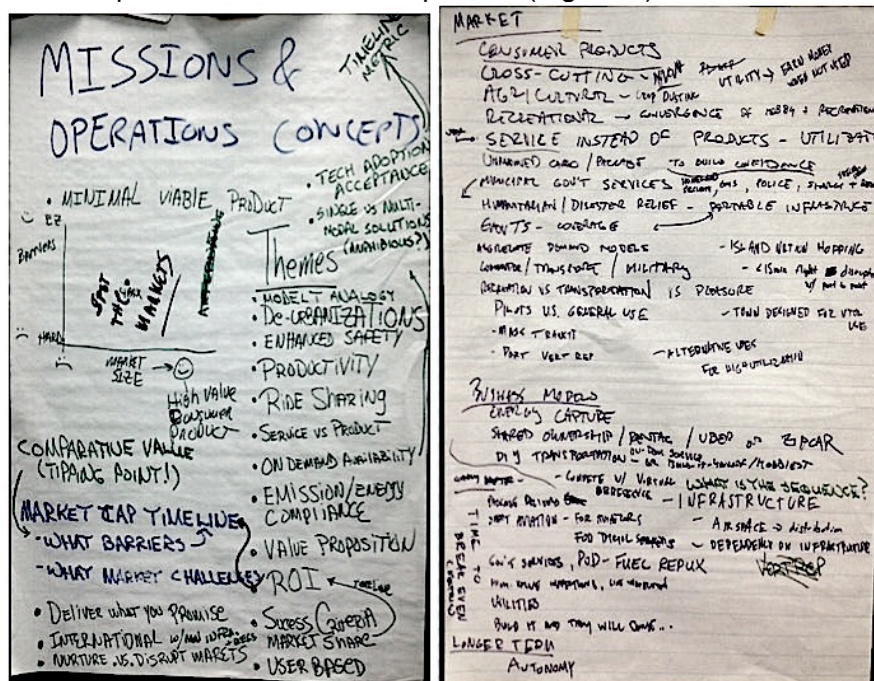 MISSIONS &
OPERATIONS CONCEPTS
TIMELINE
METRIC
• TECH ADOPTION
ACCEPTANCE
• SINGLE VS MULTI-
MODAL SOLUTIONS
(AMPHIBIOUS?)
• MINIMAL VIABLE PRODUCT
EZ
BARRIERS
HARD
SPOT
THE
MARKETS
MARKET
SIZE
HIGH VALUE
CONSUMER
PRODUCT
Themes
• MODEL T ANALOGY
• De-URBANIZATIONS
• ENHANCED SAFETY
• PRODUCTIVITY
• RIDE SHARING
• SERVICE VS PRODUCT
• ON DEMAND AVAILABILITY
• EMISSION/ENERGY
COMPLIANCE
• VALUE PROPOSITION
• ROI
• Sucess Criteria
MARKET SHARE
• USER BASED
COMPARATIVE VALUE
(TIPPING POINT!)
MARKET CAP TIMELINE
- WHAT BARRIERS
- WHAT MARKET CHALLENGES
• DELIVER WHAT YOU PROMISE
• INTERNATIONAL
• NURTURE .VS. DISRUPT MARKETS
MARKET
CONSUMER PRODUCTS
CROSS-CUTTING - UTILITY → EARN MONEY
WHEN NOT USED
AGRICULTURAL - CROP DUSTING
RECREATIONAL → CONVERGENCE OF
SERVICE INSTEAD OF PRODUCTS - UTILIZAT
UNMANNED CARGO/PACKAGE - TO BUILD CONFIDENCE
MUNICIPAL GOV'T SERVICES EMS, POLICE,
HUMANITARIAN/DISASTER RELIEF - PORTABLE INFRASTRUC
EVENTS - COVERAGE
AGGREGATE DEMAND MODELS - ISLAND NATION HOPPING
COMMUTER/TRANSPORT/MILITARY
RECREATION VS TRANSPORTATION IS PLEASURE
PILOTS VS. GENERAL USE - TOWN DESIGNED FOR VTOL
USE
- MASS TRANSIT
- PORT VERT REP - ALTERNATIVE USES
FOR HIGH UTILIZATION
BUSINESS MODELS
ENERGY CAPTURE
SHARED OWNERSHIP/RENTAL/UBER OR ZIPCAR
DIY TRANSPORTATION
- COMPETE W/ VIRTUAL WHAT IS THE SEQUENCE?
- INFRASTRUCTURE
- AIRSPACE → distribution
- DEPENDENCY ON INFRASTRUCTURE
GOV'T SERVICES, POD-FUEL REDUX
VERTREP
UTILITIES
BUILD IT AND THEY WILL COME...
TIME TO
BREAK EVEN
LONGER TERM
AUTONOMY